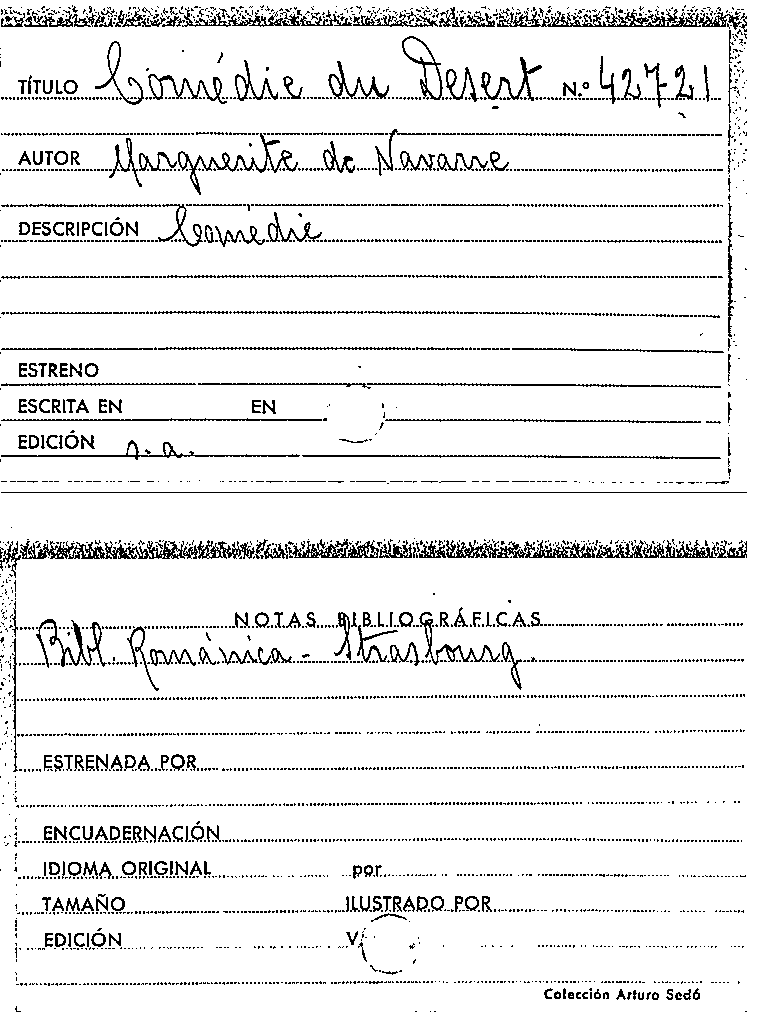 TÍTULO Comédie du Desert N.º 42721
AUTOR Marguerite de Navarre
DESCRIPCIÓN Comédie
ESTRENO
ESCRITA EN EN
EDICIÓN s. a.
NOTAS BIBLIOGRÁFICAS
Bibl. Románica - Strasbourg.
ESTRENADA POR
ENCUADERNACIÓN
IDIOMA ORIGINAL por
TAMAÑO ILUSTRADO POR
EDICIÓN V.
Colección Arturo Sedó